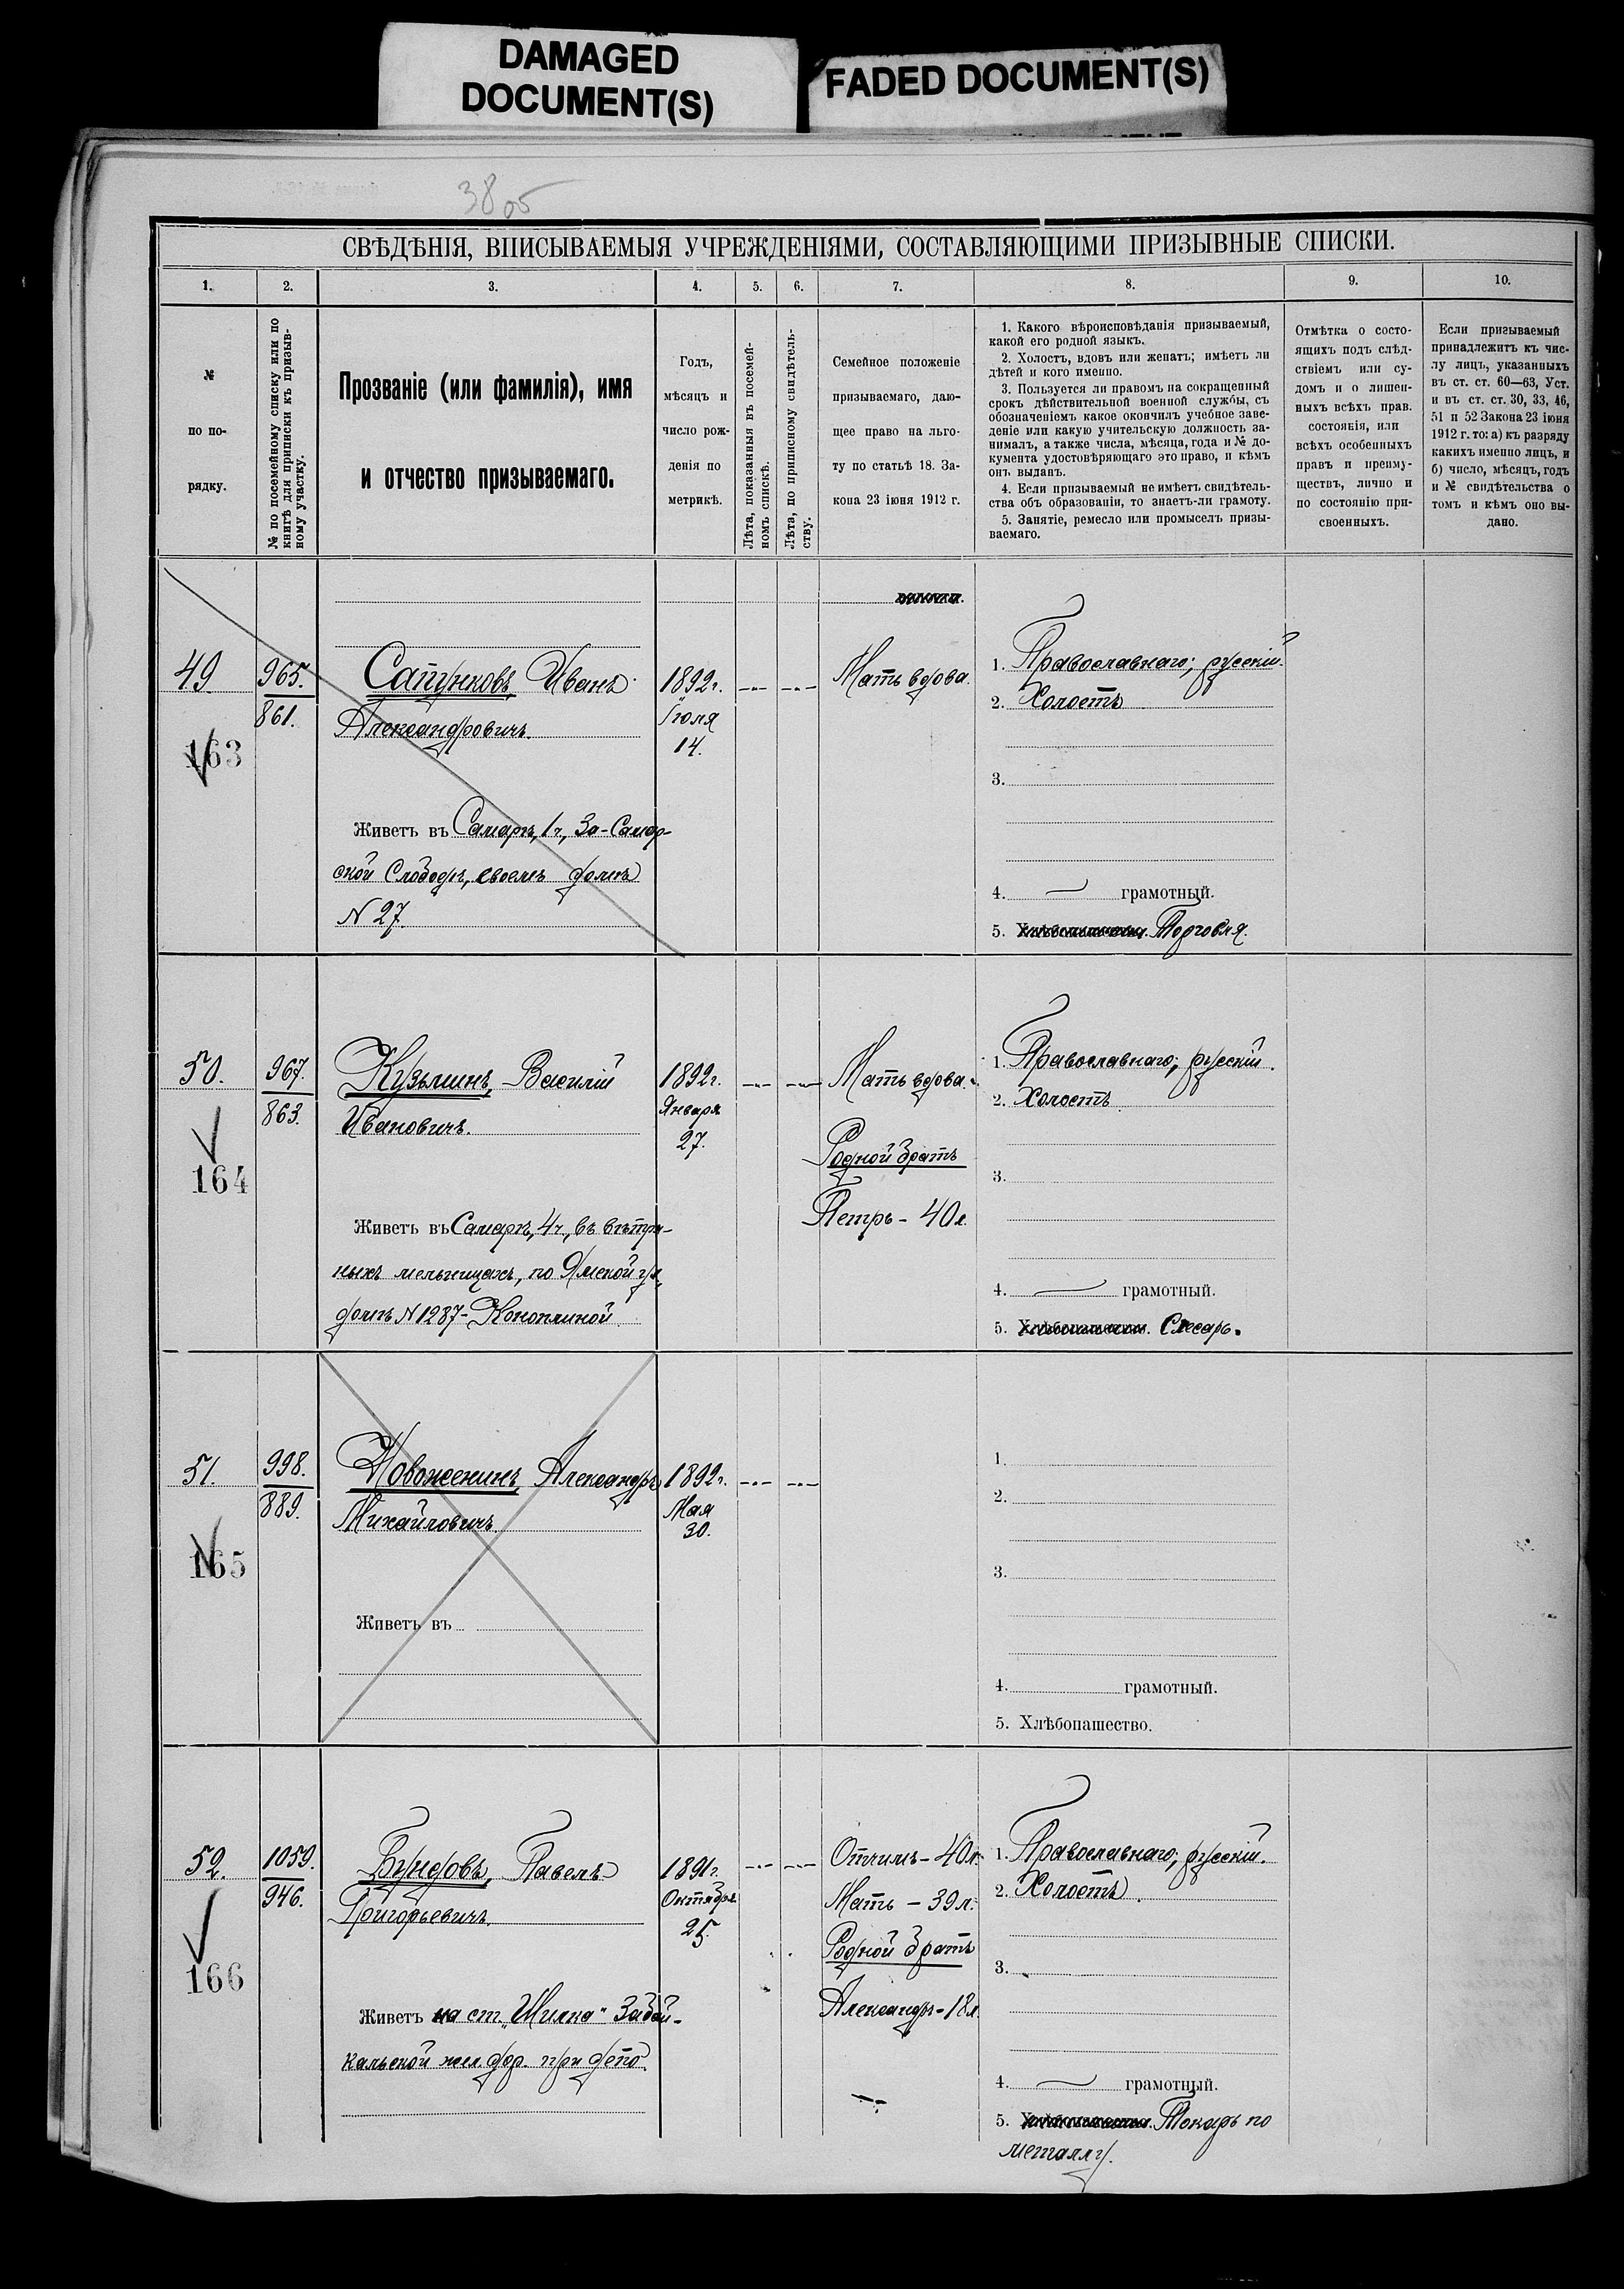 DAMAGED
DOCUMENT(S)
FADED DOCUMENT(S)
38 об
СВѢДѢНІЯ, ВПИСЫВАЕМЫЯ УЧРЕЖДЕНІЯМИ, СОСТАВЛЯЮЩИМИ ПРИЗЫВНЫЕ СПИСКИ.
1.
2.
3.
4.
5.
6.
7.
8.
9.
10.
№
по по-
рядку.
№ по посемейному списку или по
книгѣ для приписки къ призыв-
ному участку.
Прозваніе (или фамилія), имя
и отчество призываемаго.
Годъ,
мѣсяцъ и
число рож-
денія по
метрикѣ.
Лѣта, показанныя въ посемей-
номъ спискѣ.
Лѣта, по приписному свидѣтель-
ству.
Семейное положеніе
призываемаго, даю-
щее право на льго-
ту по статьѣ 18. За-
кона 23 іюня 1912 г.
1. Какого вѣроисповѣданія призываемый,
какой его родной языкъ.
2. Холостъ, вдовъ или женатъ; имѣетъ ли
дѣтей и кого именно.
3. Пользуется ли правомъ на сокращенный
срокъ дѣйствительной военной службы, съ
обозначеніемъ какое окончилъ учебное заве-
деніе или какую учительскую должность за-
нималъ, а также числа, мѣсяца, года и № до-
кумента удостовѣряющаго это право, и кѣмъ
онъ выданъ.
4. Если призываемый не имѣетъ свидѣтель-
ства объ образованіи, то знаетъ-ли грамоту.
5. Занятіе, ремесло или промыселъ призы-
ваемаго.
Отмѣтка о состо-
ящихъ подъ слѣд-
ствіемъ или су-
домъ и о лишен-
ныхъ всѣхъ прав.
состоянія, или
всѣхъ особенныхъ
правъ и преиму-
ществъ, лично и
по состоянію при-
своенныхъ.
Если призываемый
принадлежитъ къ чис-
лу лицъ, указанныхъ
въ ст. ст. 60—63, Уст.
и въ ст. ст. 30, 33, 46,
51 и 52 Закона 23 іюня
1912 г. то: а) къ разряду
какихъ именно лицъ, и
б) число, мѣсяцъ, годъ
и № свидѣтельства о
томъ и кѣмъ оно вы-
дано.
49
965.
861.
163
Сапунковъ, Иванъ
Александровичъ.
Живетъ въ Самарѣ, 1 ч., За-Самар-
ской Слободѣ, своемъ домѣ
N 27.
1892 г.
Іюля
14.
Мать вдова.
1. Православнаго; русскій.
2. Холостъ
3.
4. грамотный.
5. Хлѣбопашество. Торговля.
50.
967.
863.
164
Кузьминъ, Василій
Ивановичъ.
Живетъ въ Самарѣ, 4 ч., въ вѣтря-
ныхъ мельницахъ, по Ямской ул.
домъ N 1287 - Коноплиной.
1892 г.
Января
27.
Мать вдова.
Родной братъ
Петръ - 40 л.
1. Православнаго; русскій.
2. Холостъ
3.
4. грамотный.
5. Хлѣбопашество. Слесарь.
51.
998.
889.
165
Новоженинъ, Александръ
Михайловичъ.
Живетъ въ
1892 г.
Мая
30.
1.
2.
3.
4. грамотный.
5. Хлѣбопашество.
52.
1059.
946.
166
Бундовъ, Павелъ
Григорьевичъ.
Живетъ на ст. „Шилка" Забай-
кальской жел. дор. при депо.
1891 г.
Октября
25.
Отчимъ - 40 л.
Мать - 39 л.
Родной братъ
Александръ - 18 л.
1. Православнаго, русскій.
2. Холостъ.
3.
4. грамотный.
5. Хлѣбопашество. Токарь по
металлу.